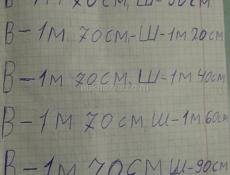 В-1м 70см, Ш-90см
В-1м 70см,-Ш-1м 20см
В-1м 70см, Ш-1м 40см
В-1м 70см, Ш-1м 60см
В-1м 70см Ш-90см